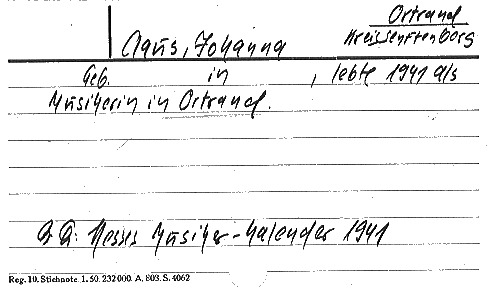 Ortrand
Kreis Senftenberg
Claus, Johanna
Geb. in , lebte 1941 als
Musikerin in Ortrand.
Hesses Musiker-Kalender 1941
Reg. 10. Stichnote. 1. 50. 232000. A. 803. S. 4062